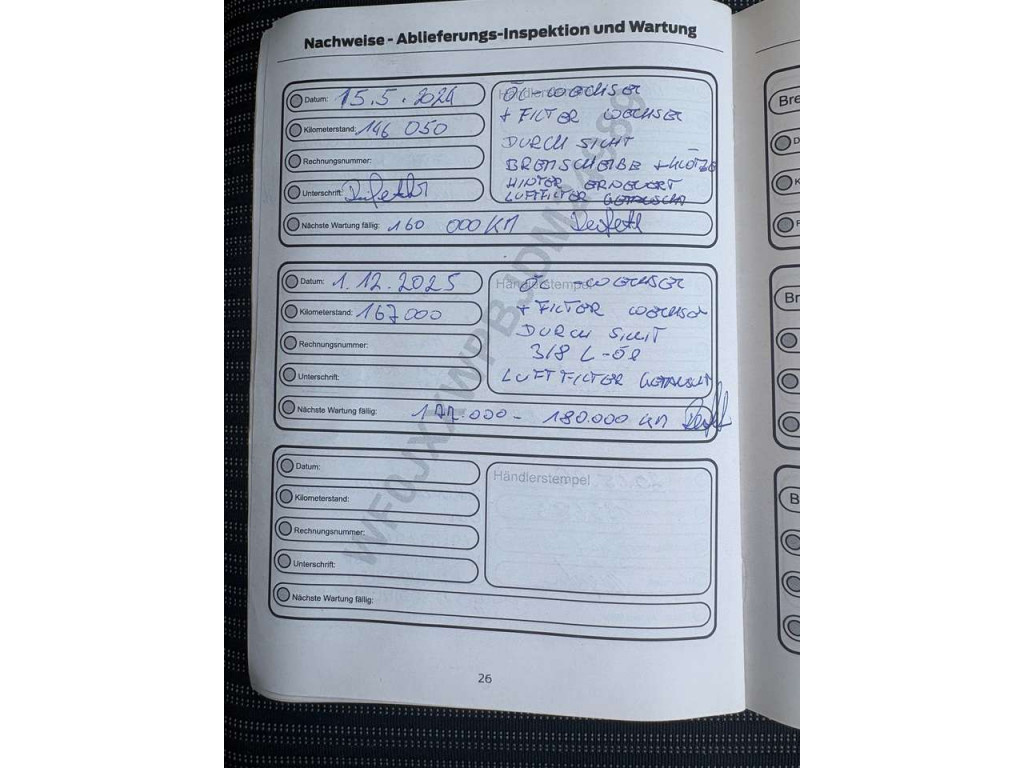 Nachweise - Ablieferungs-Inspektion und Wartung
Datum: 15.5.2024
Kilometerstand: 146 050
Rechnungsnummer:
Unterschrift:
ÖL-WECHSEL
+ FILTER WECHSEL
DURCH SICHT
BREMSCHEIBE + KLÖTZE
HINTER ERNEUERT
LUFTFILTER GETAUSCHT
Nächste Wartung fällig: 160 000 KM
Datum: 1.12.2025
Kilometerstand: 167000
Rechnungsnummer:
Unterschrift:
Händlerstempel
ÖL-WECHSEL
+ FILTER WECHSEL
DURCH SICHT
3,8 L-ÖL
LUFTFILTER GETAUSCHT
Nächste Wartung fällig: 177.000 - 180.000 KM
Datum:
Kilometerstand:
Rechnungsnummer:
Unterschrift:
Händlerstempel
Nächste Wartung fällig:
26
Bre
Br
B